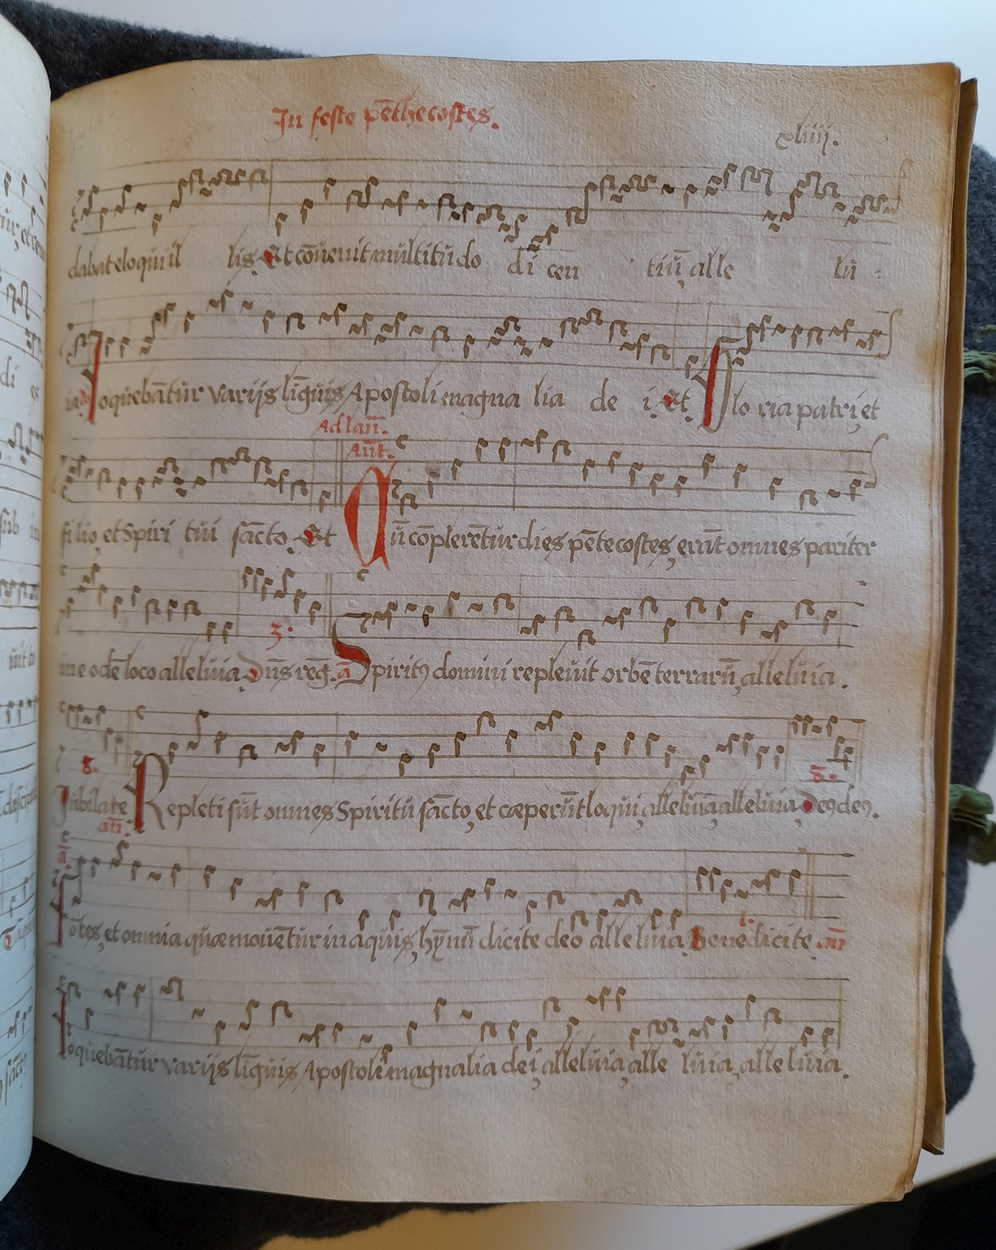 In feste pẽthecostes.
xliiij.
dabat eloqui il lis. Et cõuenit multitudo di cen tiũ, alle lu
ia. Loquebãtur varijs lĩguis Apostoli magna lia de i. Et. Glo ria patri, et
Ad lau̅.
Añt.
filio, et Spiri tui sãcto. Et Cũ cõplerẽtur dies pẽtecostes, erãt omnes pariter
in eodẽ loco alleluia. Dñs reg. ã Spirit9 domini repleuit orbẽ terrarũ, alleluia.
3.
8.
Iubilate Repleti sũt omnes Spiritu sãcto, et cæperũt loqui, alleluia, alleluia, De9 de9.
añ.
8.
ã
Fõtes, et omnia quæ mouẽtur in aquis, hỹnũ dicite deo alleluia. Benedicite. añ
Loquebãtur varijs lĩguis Apostole magnalia dei, alleluia, alle luia, alle luia.